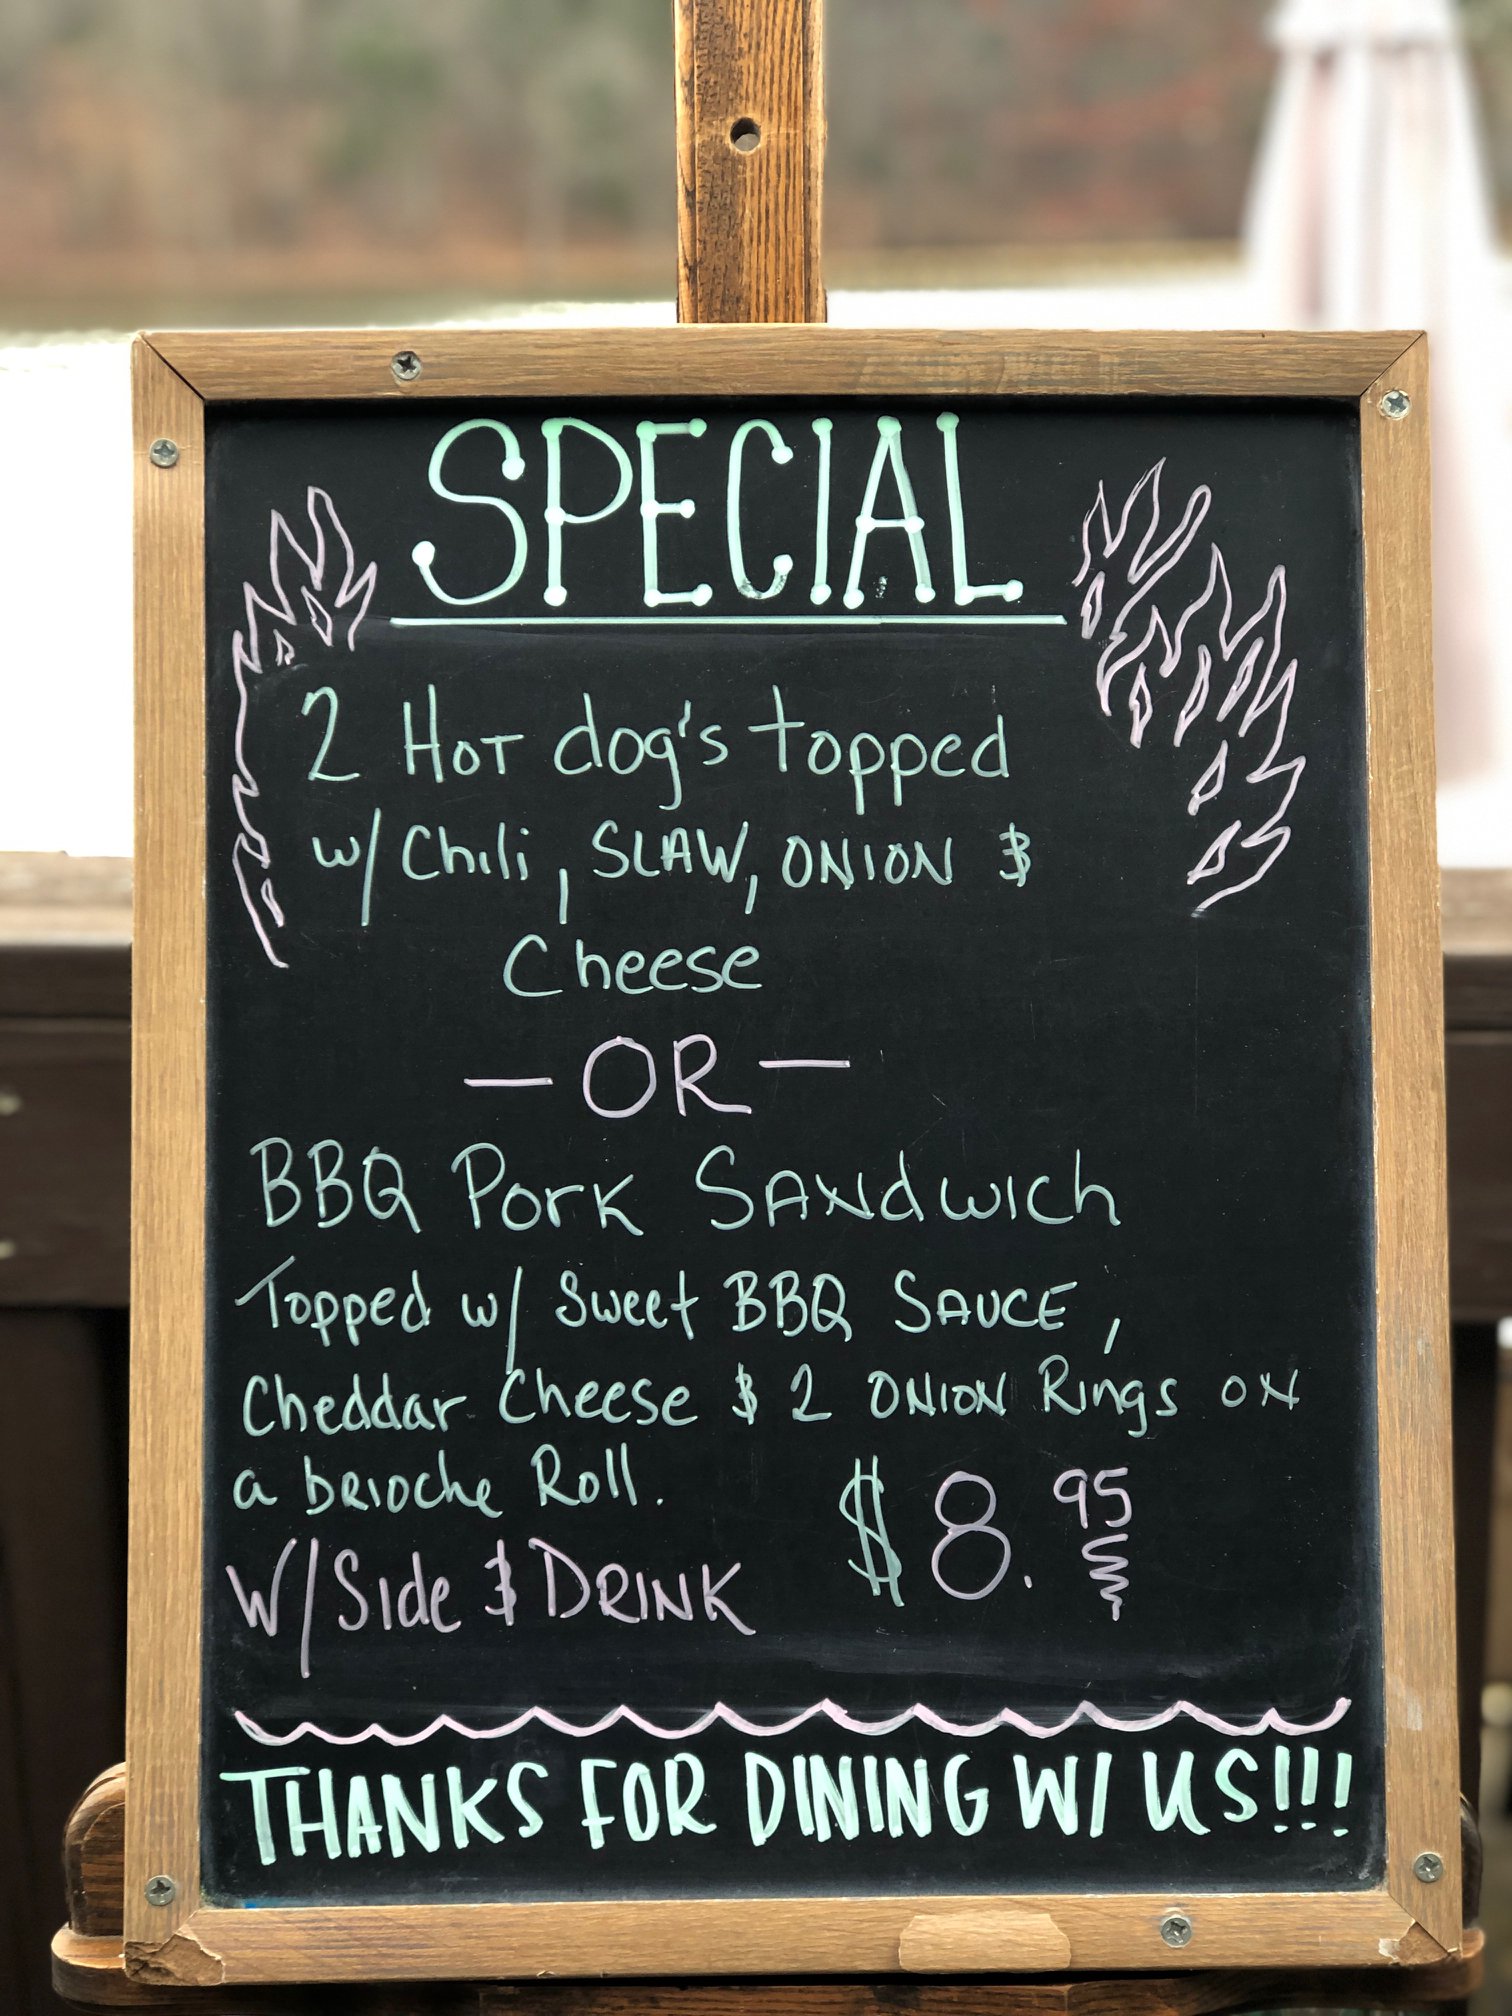 SPECIAL
2 Hot dog's topped
w/ Chili, SLAW, ONION &
Cheese
— OR —
BBQ Pork Sandwich
Topped w/ Sweet BBQ SAUCE,
Cheddar Cheese & 2 ONION Rings ON
a brioche Roll.
$8.95
W/Side & DRINK
THANKS FOR DINING W/ US!!!